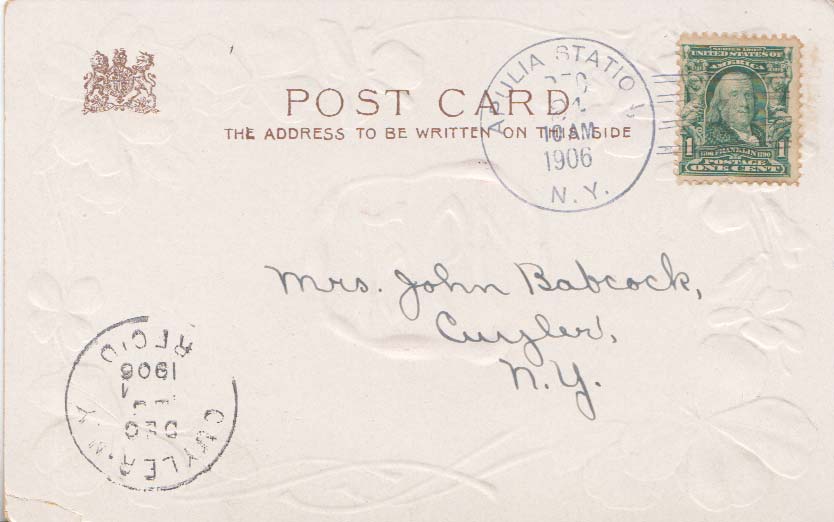 POST CARD
THE ADDRESS TO BE WRITTEN ON THIS SIDE
APULIA STATION
DEC
10 AM
1906
N.Y.
SERIES 1902
UNITED STATES OF
AMERICA
1 FRANKLIN 1
POSTAGE
ONE CENT
Mrs. John Babcock,
Cuyler,
N.Y.
CUYLER N.Y.
DEC
1906
REC'D